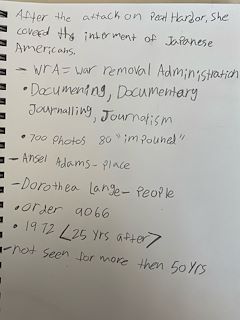 After the attack on Pearl Harbor, She
covered the interment of Japanese
Americans.
- WRA = War removal Administration
• Documening, Documentary
Journalling, Journalism
• 700 photos 80 "impouned"
- Ansel Adams - place
- Dorothea Lange - People
• Order 9066
• 1972 <25 Yrs after>
- not seen for more then 50 Yrs